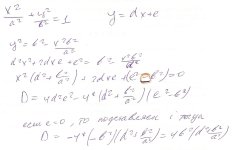 x²/a² + y²/b² = 1 y = dx + e
y² = b² - x²b²/a²
d²x² + 2dx + e² = b² - x²b²/a²
x²(d² + b²/a²) + 2dx + (e² - b²) = 0
D = 4d²e² - 4(d² + b²/a²)(e² - b²)
если e=0, то подставляем и тогда
D = -4(-b²)(d² + b²/a²) = 4b²(d² + b²/a²)